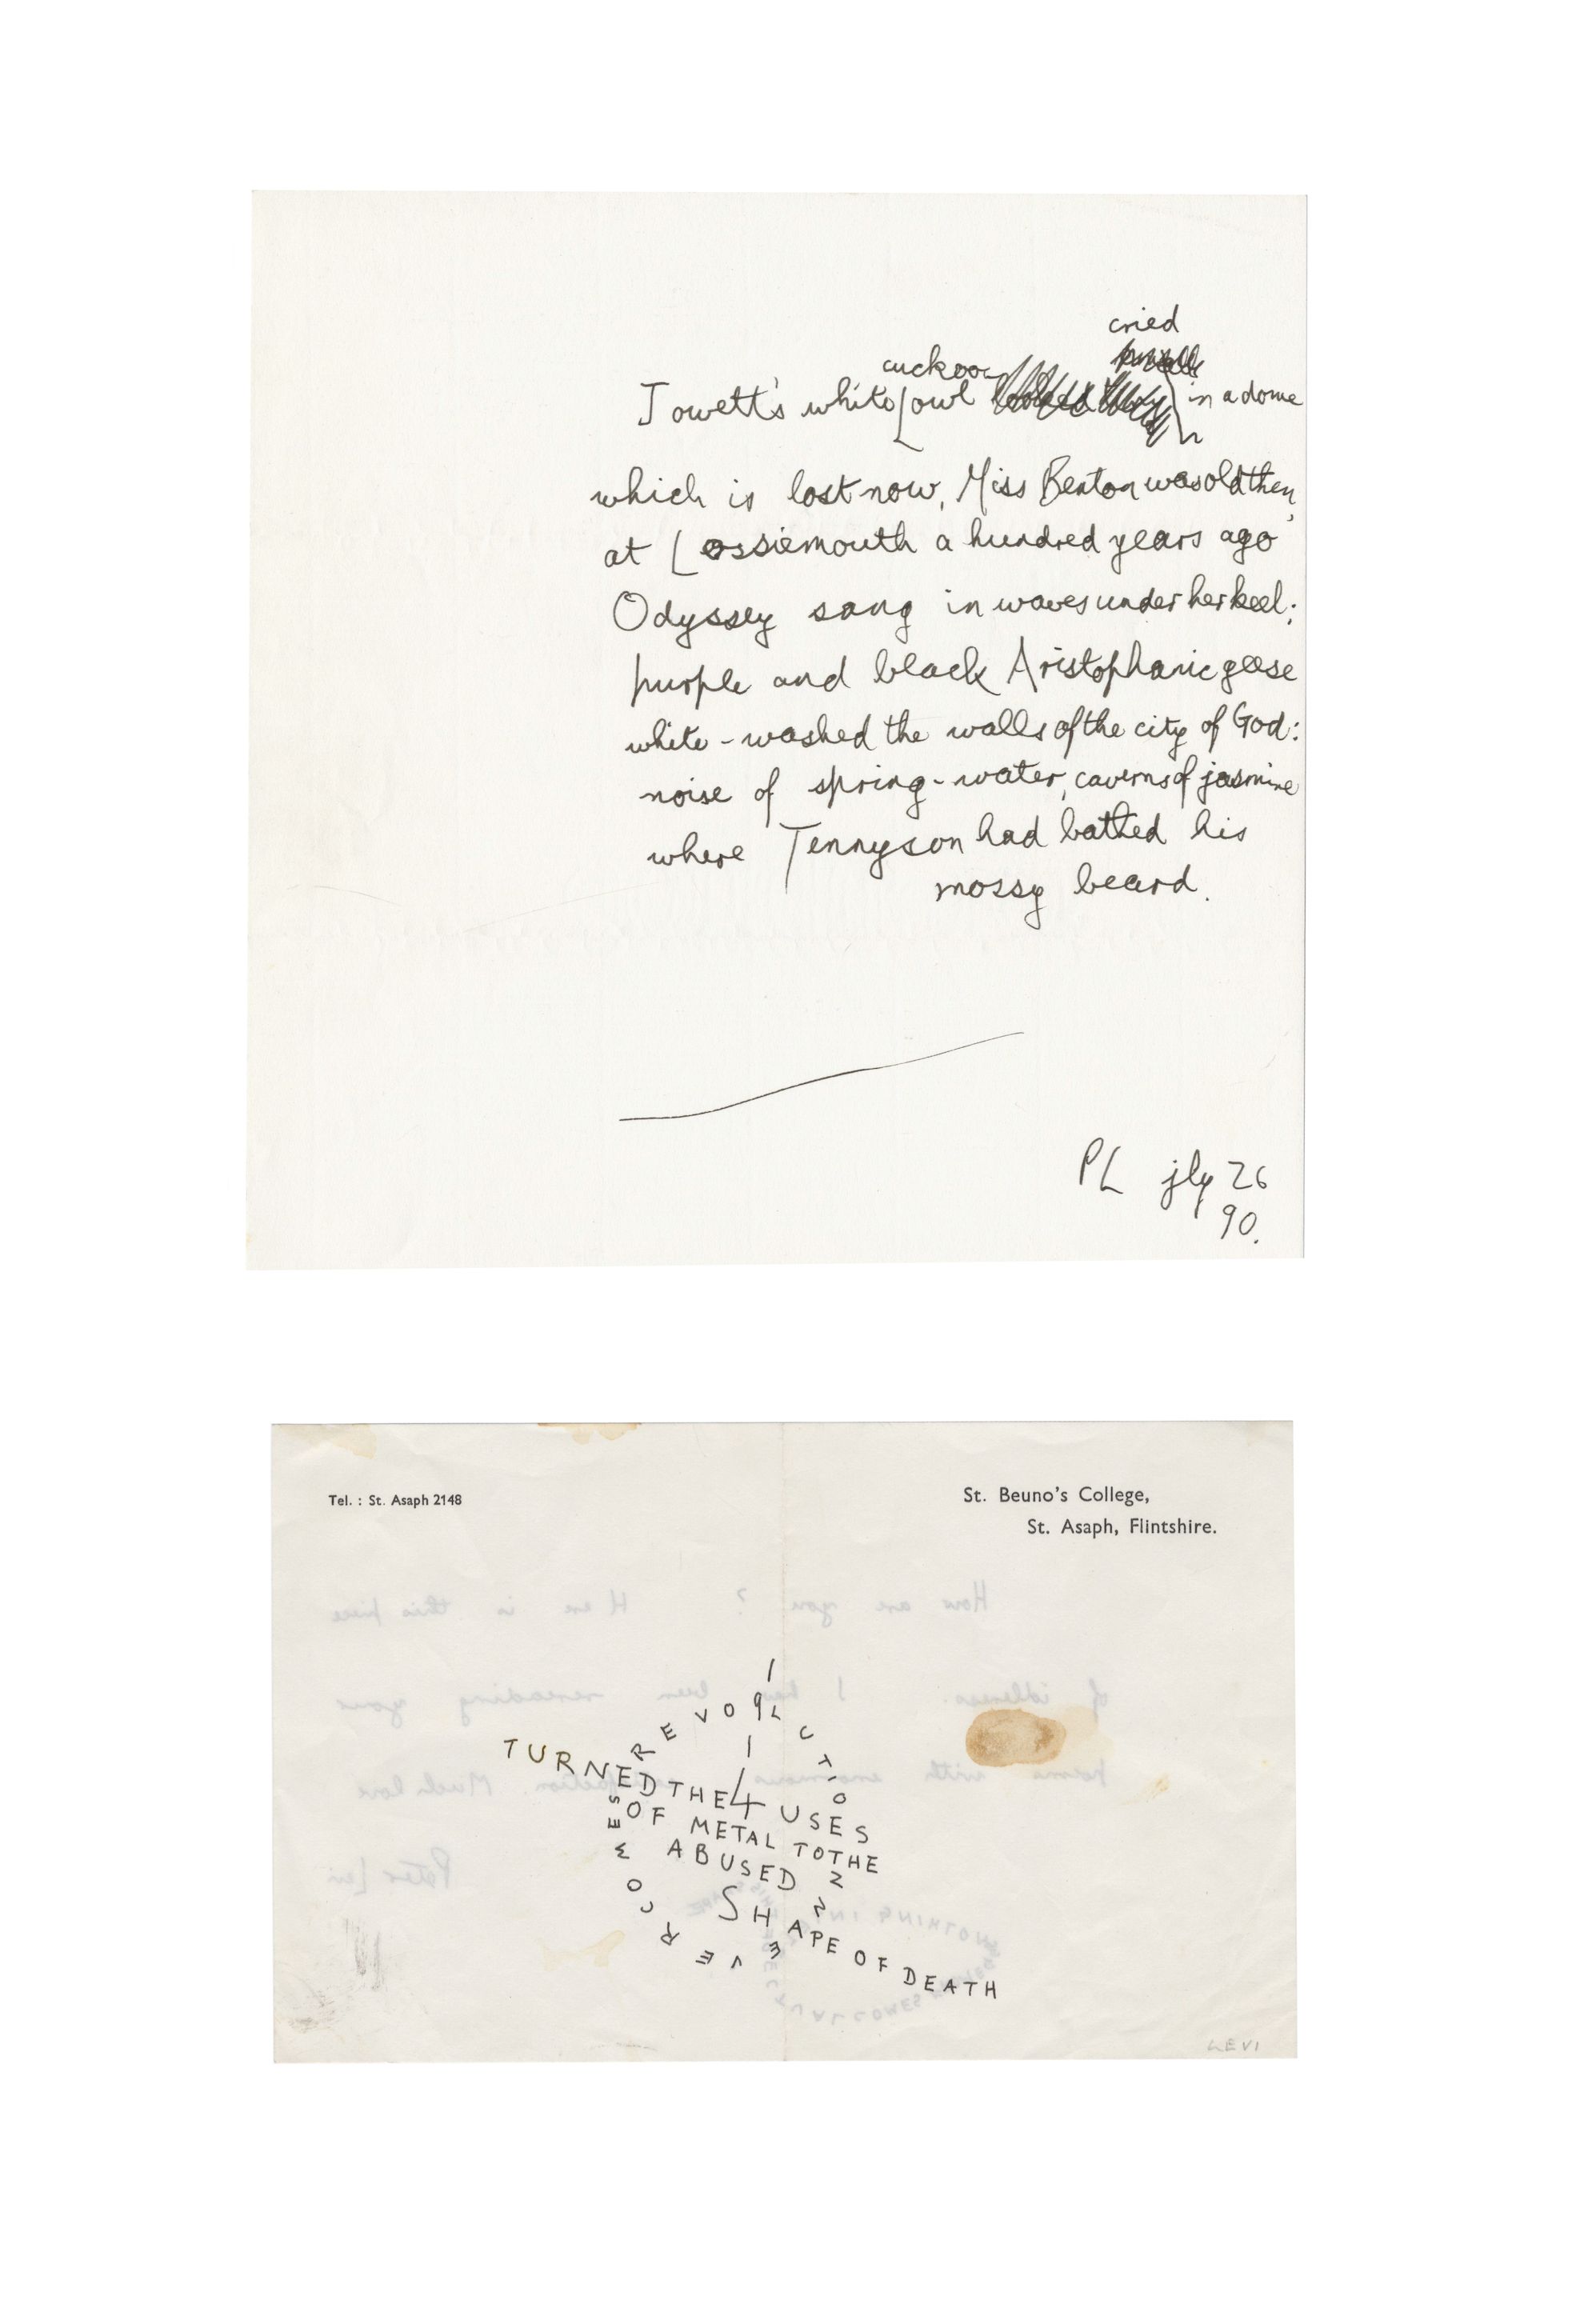 cried
cuckoo
Jowett's white owl in a dome
which is lost now, Miss Benton was old then,
at Lossiemouth a hundred years ago
Odyssey sang in waves under her keel:
purple and black Aristophanic geese
white-washed the walls of the city of God:
noise of spring-water, caverns of jasmine
where Tennyson had bathed his
mossy beard.
PL jly 26
90.
Tel. : St. Asaph 2148
St. Beuno's College,
St. Asaph, Flintshire.
How are you ? Here is this piece
of idleness. I have been rereading your
poems with enormous satisfaction. Much love
Peter Levi
1
9
1
REVOLUTION
TURNED THE 4 USES
OF METAL TO THE
ABUSED
SHAPE OF DEATH
LEVI